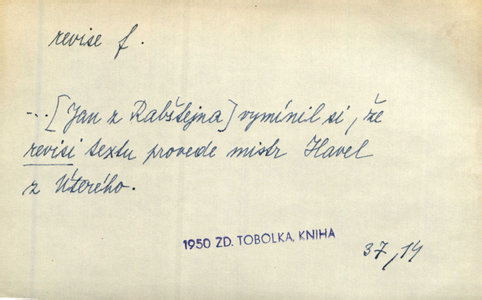 revise f.
...[Jan z Rabštejna] vymínil si, že
revisi textu provede mistr Havel
z Úterého.
1950 ZD. TOBOLKA, KNIHA
37,14